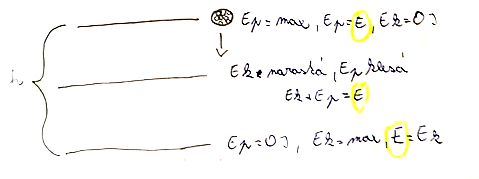 Ep = max, Ep = E, Ek = 0J
Ek narastá, Ep klesá
Ek + Ep = E
h
Ep = 0J, Ek = max, E = Ek